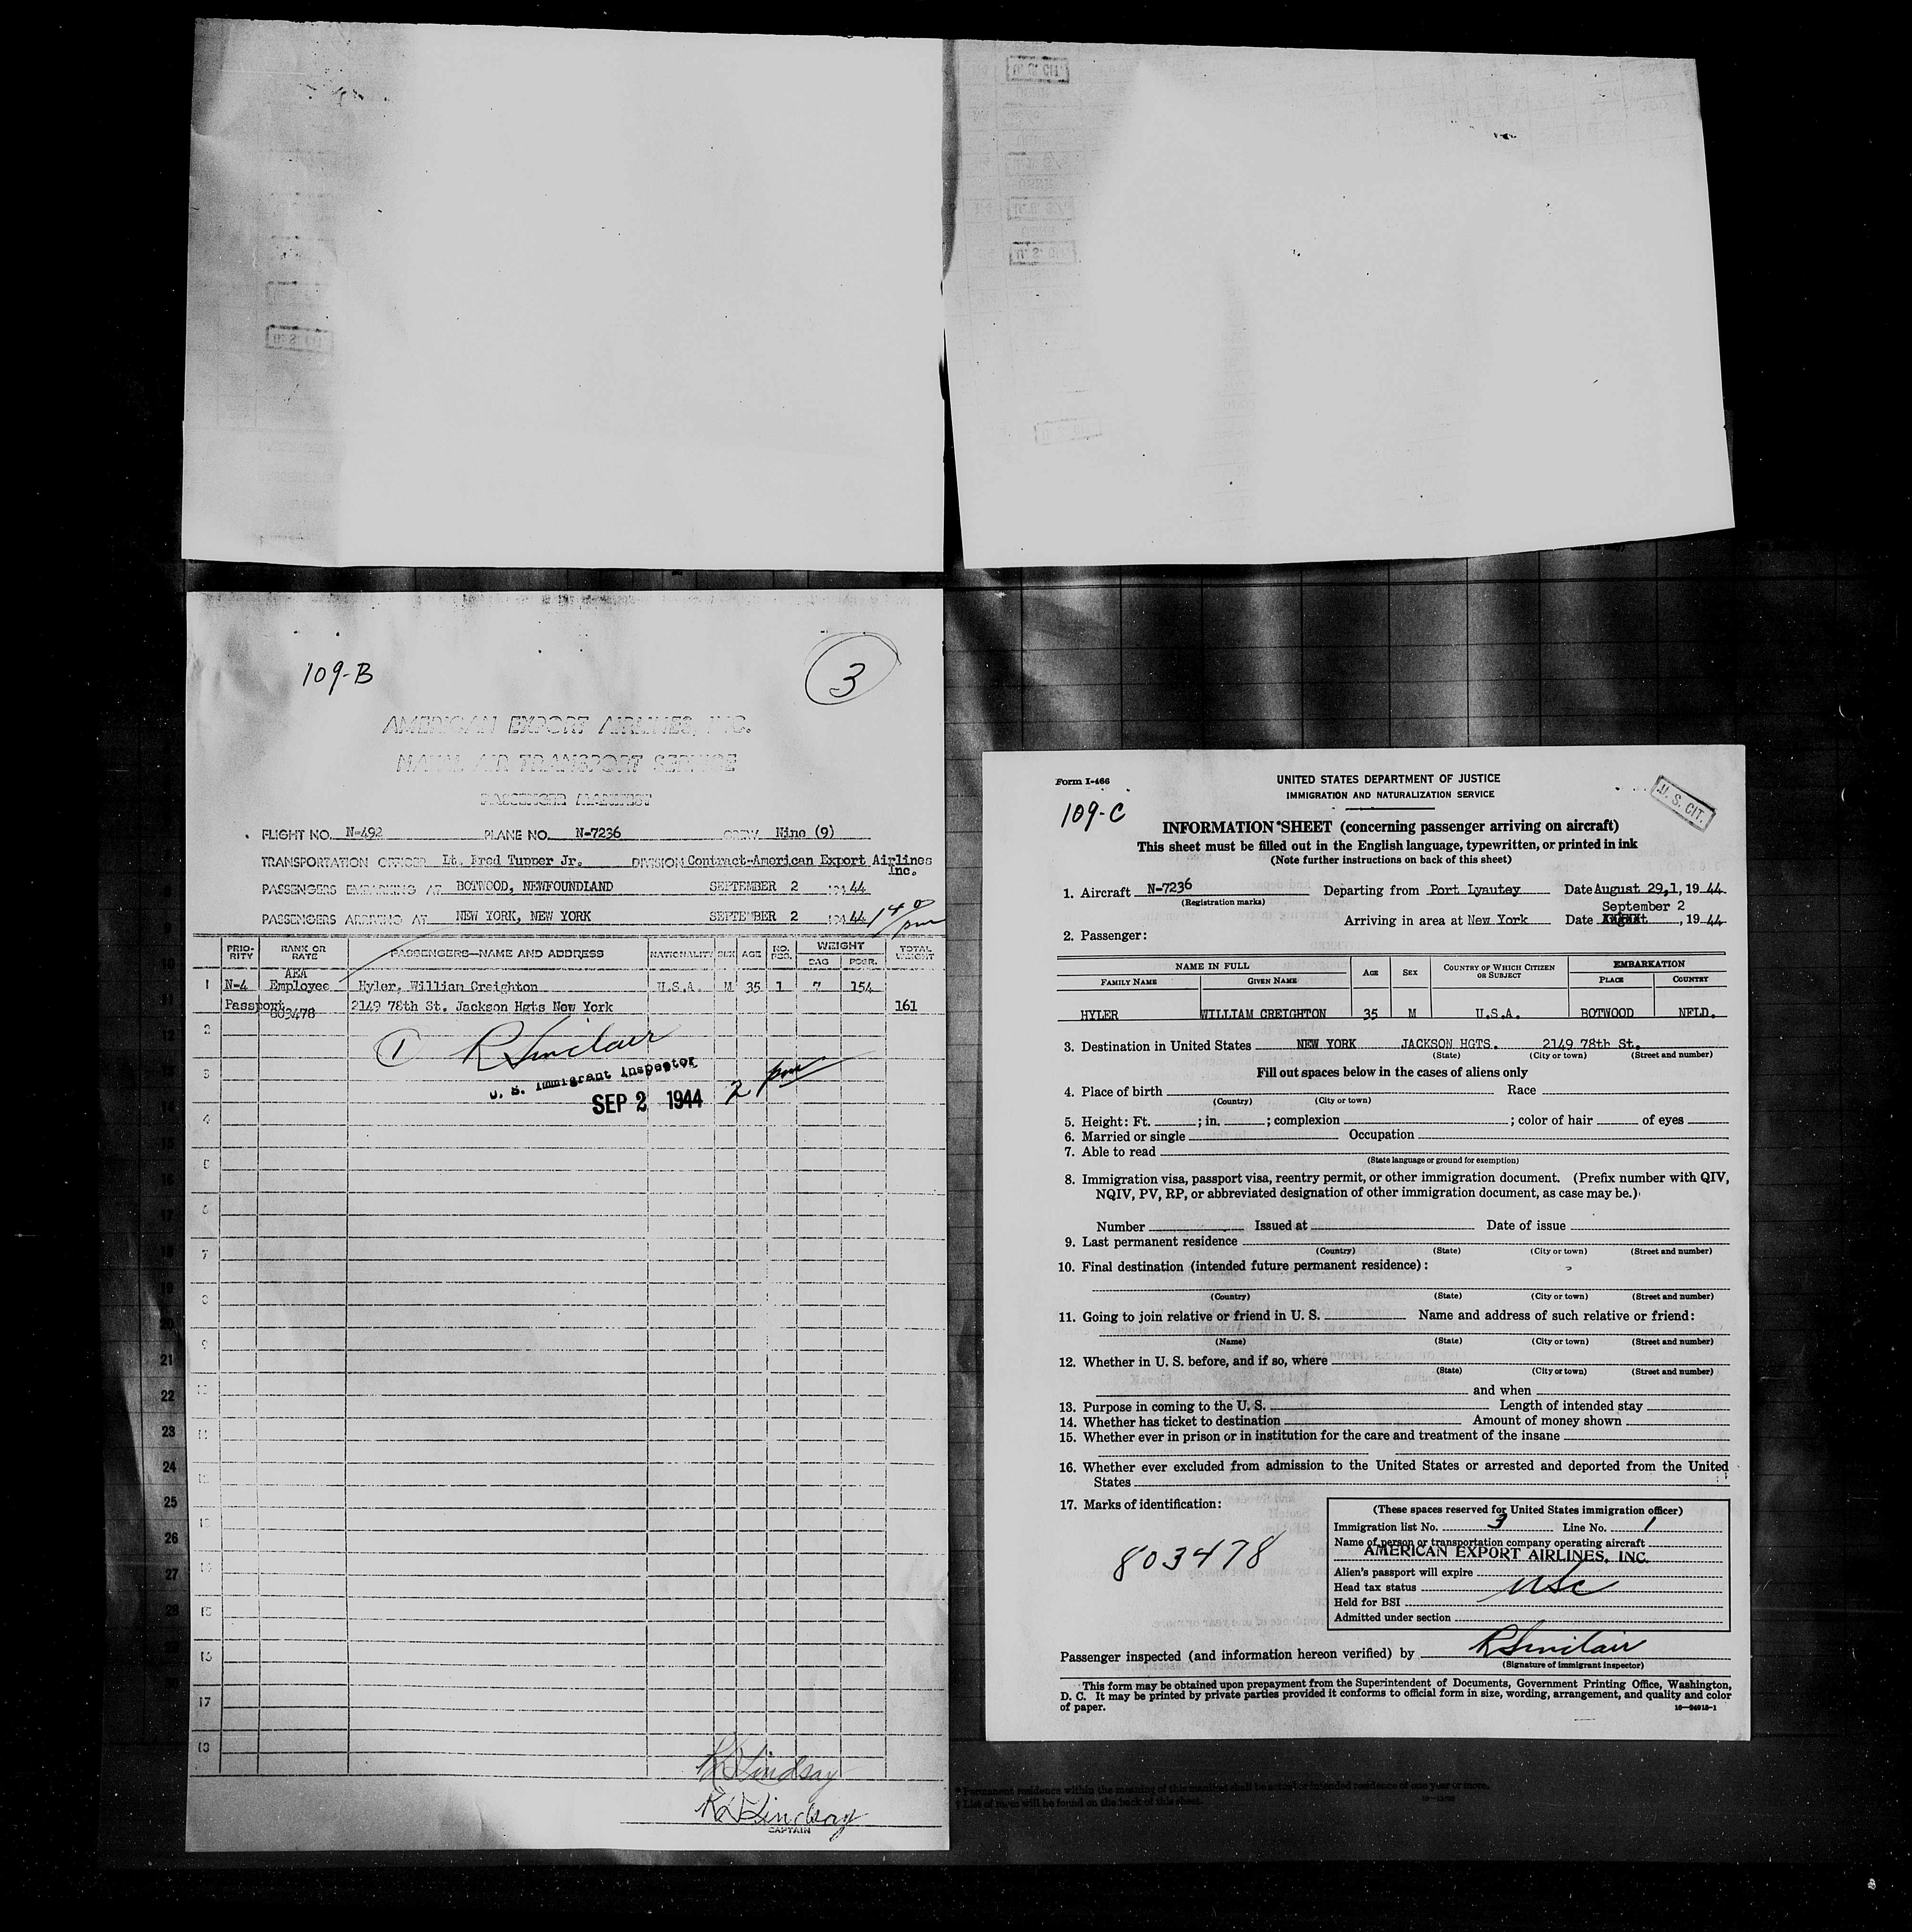 109-B
3
AMERICAN EXPORT AIRLINES, INC.
NAVAL AIR TRANSPORT SERVICE
PASSENGER MANIFEST
FLIGHT NO. N-492 PLANE NO. N-7236 CREW Nine (9)
TRANSPORTATION OFFICER Lt. Fred Tupper Jr. DIVISION Contract-American Export Airlines
Inc.
PASSENGERS EMBARKING AT BOTWOOD, NEWFOUNDLAND SEPTEMBER 2 194 44
PASSENGERS ARRIVING AT NEW YORK, NEW YORK SEPTEMBER 2 194 44
PRIO-RITY RANK OR RATE PASSENGERS—NAME AND ADDRESS NATIONALITY SEX AGE NO. PCS. WEIGHT BAG PSGR. TOTAL WEIGHT
AEA
1 N-4 Employee Hyler, William Creighton U.S.A. M 35 1 7 154
Passport 803478 2149 78th St. Jackson Hgts New York 161
1 R Sinclair
U. S. Immigrant Inspector
SEP 2 1944 2 pm
2
3
4
5
6
7
8
9
10
11
12
13
14
15
16
17
18
R D Lindsay
R D Lindsay
CAPTAIN
Form I-466
UNITED STATES DEPARTMENT OF JUSTICE
IMMIGRATION AND NATURALIZATION SERVICE
U. S. CIT.
109-C
INFORMATION SHEET (concerning passenger arriving on aircraft)
This sheet must be filled out in the English language, typewritten, or printed in ink
(Note further instructions on back of this sheet)
1. Aircraft N-7236 Departing from Port Lyautey Date August 29,1, 19 44
(Registration marks)
September 2
Arriving in area at New York Date August, 19 44
2. Passenger:
NAME IN FULL AGE SEX COUNTRY OF WHICH CITIZEN OR SUBJECT EMBARKATION
FAMILY NAME GIVEN NAME PLACE COUNTRY
HYLER WILLIAM CREIGHTON 35 M U.S.A. BOTWOOD NFLD.
3. Destination in United States NEW YORK JACKSON HGTS. 2149 78th St.
(State) (City or town) (Street and number)
Fill out spaces below in the cases of aliens only
4. Place of birth Race
(Country) (City or town)
5. Height: Ft. ; in. ; complexion ; color of hair of eyes
6. Married or single Occupation
7. Able to read
(State language or ground for exemption)
8. Immigration visa, passport visa, reentry permit, or other immigration document. (Prefix number with QIV,
NQIV, PV, RP, or abbreviated designation of other immigration document, as case may be.)
Number Issued at Date of issue
9. Last permanent residence
(Country) (State) (City or town) (Street and number)
10. Final destination (intended future permanent residence):
(Country) (State) (City or town) (Street and number)
11. Going to join relative or friend in U. S. Name and address of such relative or friend:
(Name) (State) (City or town) (Street and number)
12. Whether in U. S. before, and if so, where
(State) (City or town) (Street and number)
and when
13. Purpose in coming to the U. S. Length of intended stay
14. Whether has ticket to destination Amount of money shown
15. Whether ever in prison or in institution for the care and treatment of the insane
16. Whether ever excluded from admission to the United States or arrested and deported from the United
States
17. Marks of identification:
803478
(These spaces reserved for United States immigration officer)
Immigration list No. 3 Line No. 1
Name of person or transportation company operating aircraft
AMERICAN EXPORT AIRLINES, INC.
Alien's passport will expire
Head tax status USC
Held for BSI
Admitted under section
Passenger inspected (and information hereon verified) by R Sinclair
(Signature of immigrant inspector)
This form may be obtained upon prepayment from the Superintendent of Documents, Government Printing Office, Washington,
D. C. It may be printed by private parties provided it conforms to official form in size, wording, arrangement, and quality and color
of paper.
* Permanent residence within the meaning of this manifest shall be actual or intended residence of one year or more.
† List of races will be found on the back of this sheet.